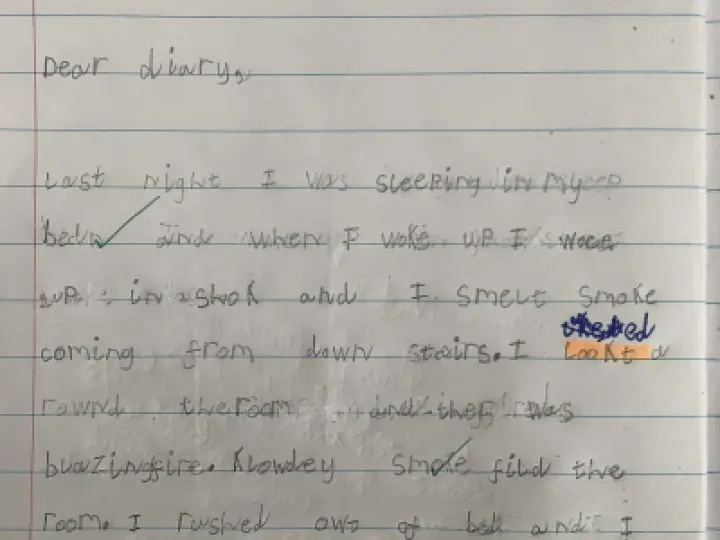 Dear diary,
Last night I was sleeping in my
bed and when I woke up I woce
up in a shok and I smelt smoke
coming from down stairs. I lookt a
rawnd the room and ther was
blazing fire. Klowdey smoke fild the
room. I rushed owt of bed and I